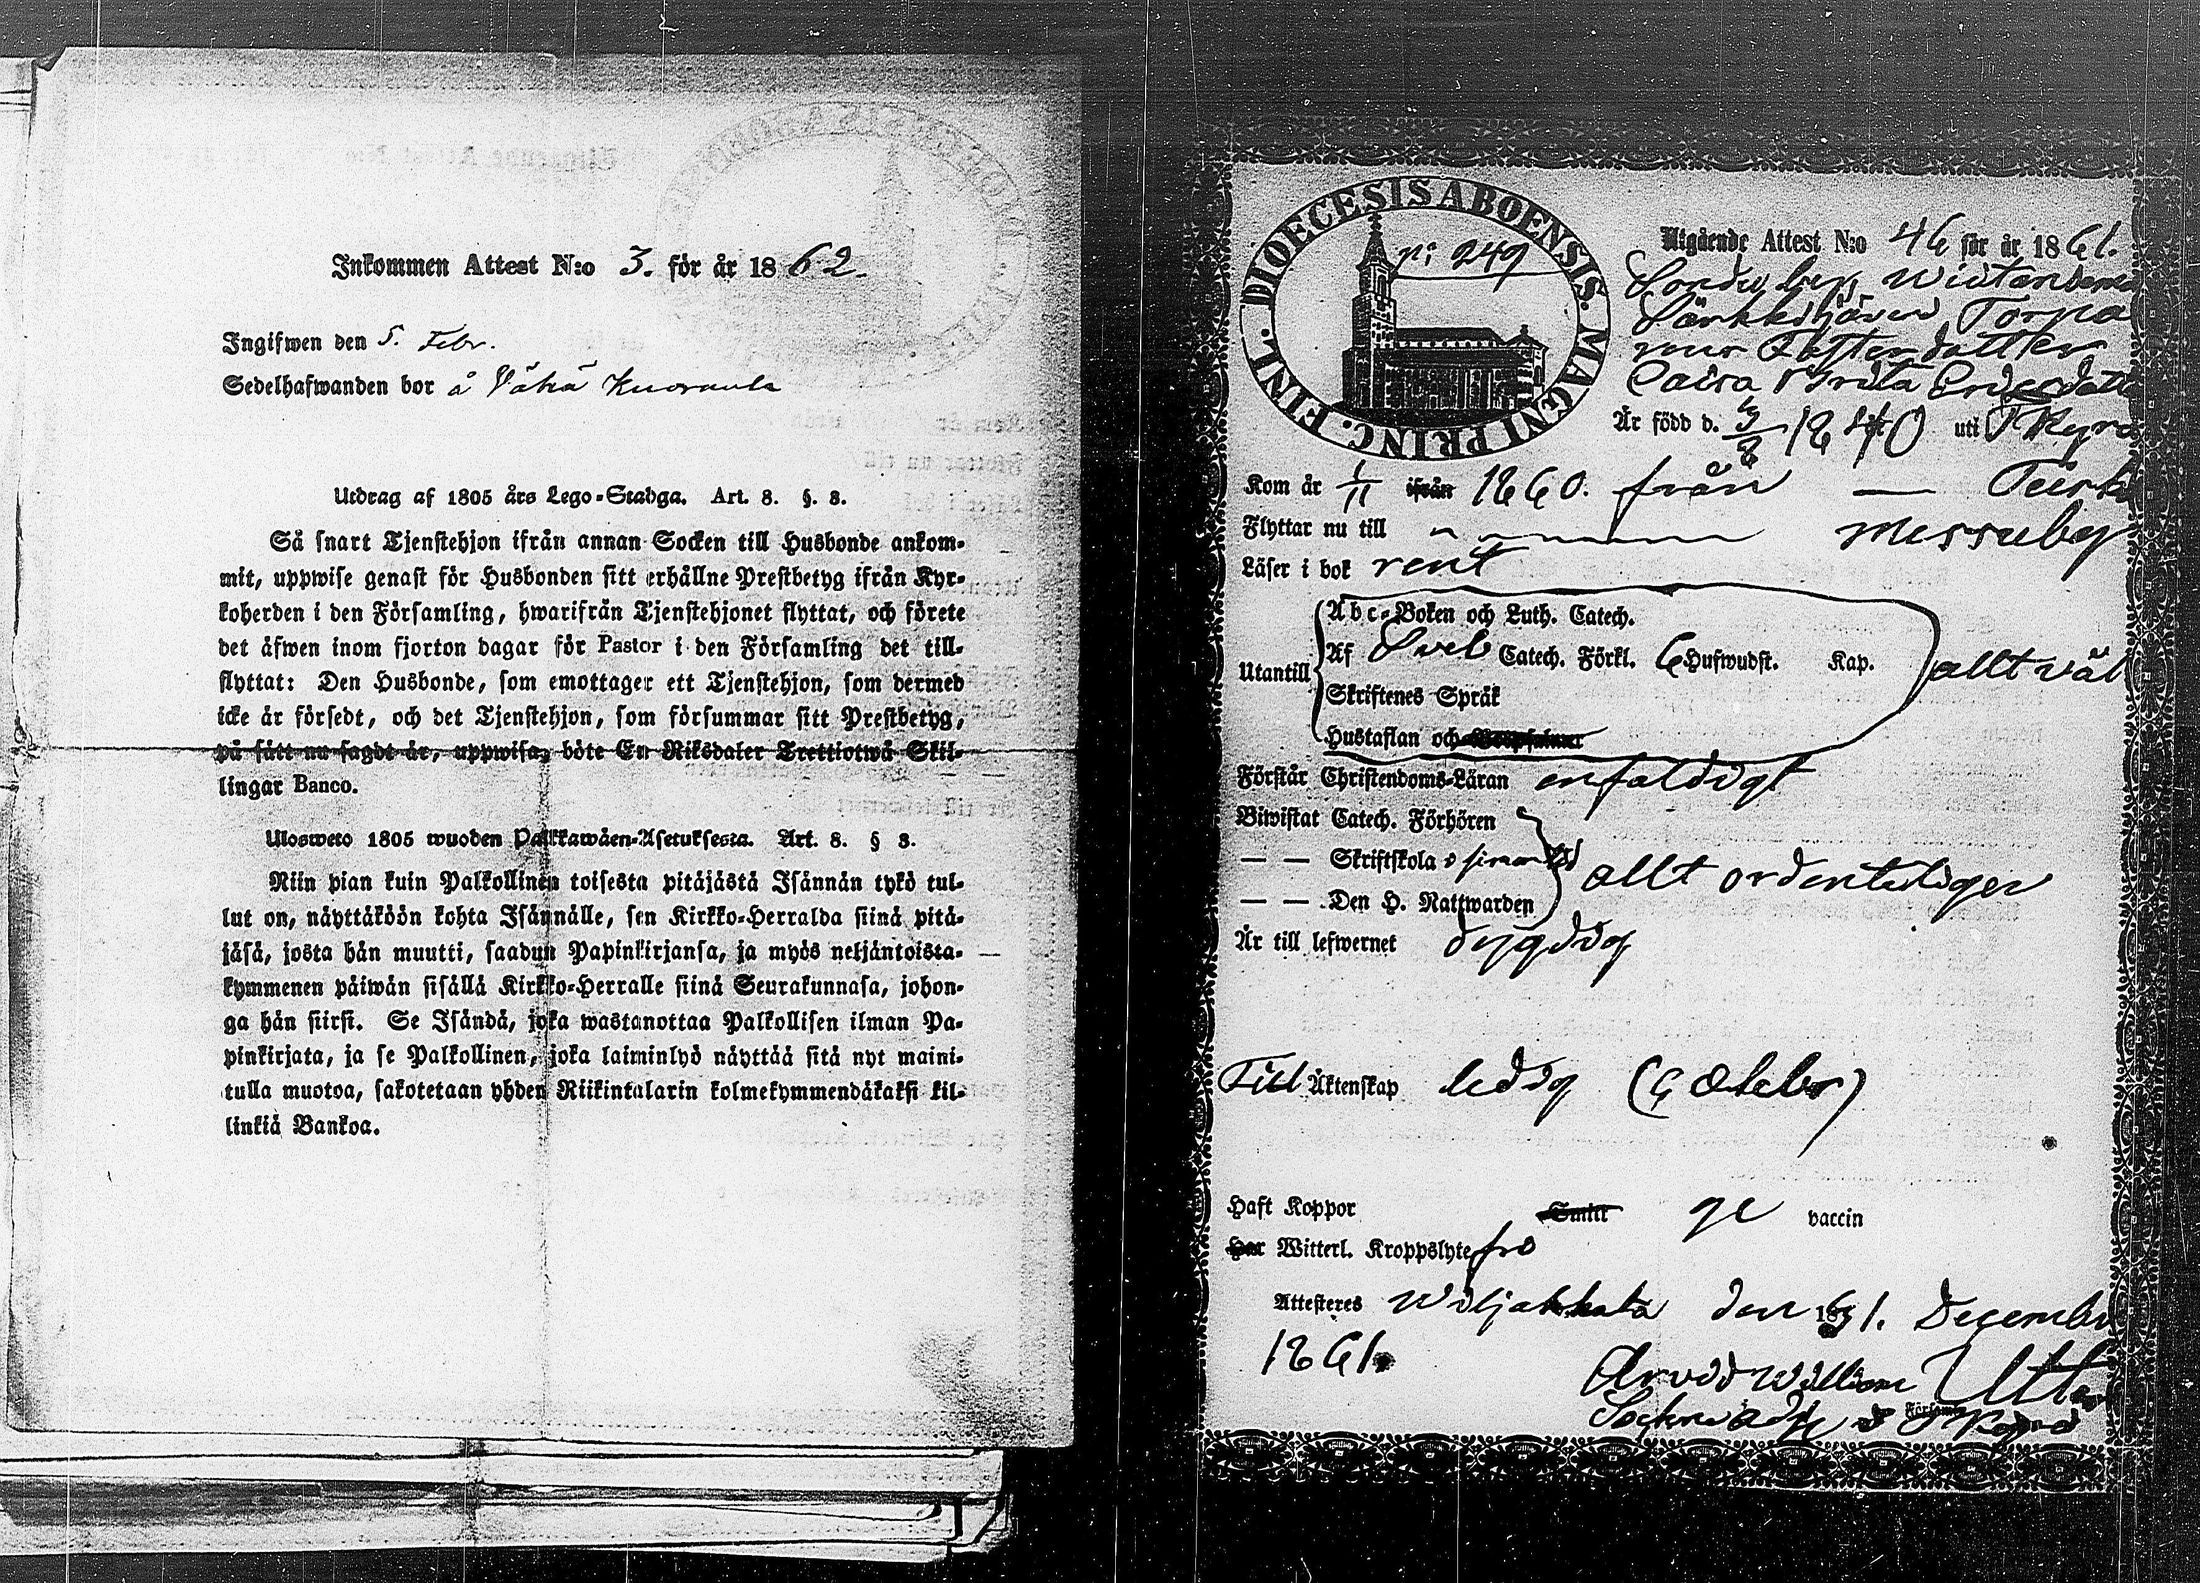 Inkommen Attest N:o 3. för år 1862.
Ingifwen den 5. Febr.
Sedelhafwanden bor å Vähä Kuoranula
Utdrag af 1805 års Lego-Stadga. Art. 8. §. 8.
Så snart Tjenstehjon ifrån annan Socken till Husbonde ankom-
mit, uppwise genast för Husbonden sitt erhållne Prestbetyg ifrån Kyr-
koherden i den Församling, hwarifrån Tjenstehjonet flyttat, och förete
det äfwen inom fjorton dagar för Pastor i den Församling det till-
flyttat: Den Husbonde, som emottager ett Tjenstehjon, som dermed
icke är försedt, och det Tjenstehjon, som försummar sitt Prestbetyg,
på sätt nu sagdt är, uppwisa, böte En Riksdaler Trettiotwå Skil-
lingar Banco.
Ulosweto 1805 wuoden Palkkawäen-Asetuksesta. Art. 8. § 8.
Niin pian kuin Palkollinen toisesta pitäjästä Isännän tykö tul-
lut on, näyttäköön kohta Isännälle, sen Kirkko-Herralda siinä pitä-
jäsä, josta hän muutti, saadun Papinkirjansa, ja myös neljäntoista-
kymmenen päiwän sisällä Kirkko-Herralle siinä Seurakunnasa, johon-
ga hän siirsi. Se Isändä, joka wastanottaa Palkollisen ilman Pa-
pinkirjata, ja se Palkollinen, joka laiminlyö näyttää sitä nyt maini-
tulla muotoa, sakotetaan yhden Riikintalarin kolmekymmendäkaksi kil-
linkiä Bankoa.
DIOECESIS ABOENSIS. MAGNI PRINC. FINL.
n: 249
Utgående Attest N:o 46 för år 1861.
Särkkijärvi Torpa
Fosterdotter
Caisa Brita Ericsdott
Är född d. 3/8 1840 uti TKyro
Kom år 1/11 ifrån 1860. från —
Flyttar nu till Messuby
Läser i bok rent
Abc-Boken och Luth. Catech.
Utantill Af Sveb Catech. Förkl. 6 Hufwudst. Kap. allt väl
Skriftenes Språk
Hustaflan och
Förstår Christendoms-Läran enfaldigt
Biwistat Catech. Förhören
— — Skriftskola allt ordenteligen
— — Den H. Nattwarden
Är till lefwernet dygdig
Till Äktenskap ledig (6 Octobr)
Haft Koppor Smitt ge vaccin
Har Witterl. Kroppslyte fri
Attesteres Wiljakkala den 31. December
1861.
Arvid William
Församl.